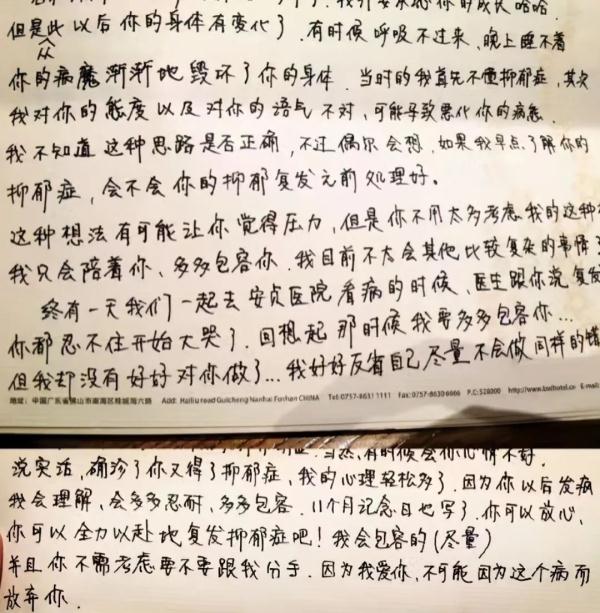 但是此以后你的身体有变化了. 有时候呼吸不过来、晚上睡不着
从
你的病魔渐渐地毁坏了你的身体. 当时的我首先不懂抑郁症, 其次
我对你的态度以及对你的语气不对, 可能导致恶化你的病态.
我不知道这种思路是否正确, 不过偶尔会想. 如果我早点了解你的
抑郁症, 会不会你的抑郁复发之前处理好。
这种想法有可能让你觉得压力, 但是你不用太多考虑我的这种
我只会陪着你、多多包容你. 我目前不太会其他比较复杂的事情
终有一天我们一起去安贞医院看病的时候、医生跟你说复发
你都忍不住开始大哭了. 回想起那时候我要多多包容你...
但我却没有好好对你做了... 我好好反省自己尽量不会做同样的错
地址: 中国广东省佛山市南海区桂城海六路 Add: Hailiu road Guicheng Nanhai Foshan CHINA Tel: 0757-8631 1111 Fax: 0757-8630 6666 P.C: 528000
当然, 有时候会你心情不好.
说实话, 确诊了你又得了抑郁症, 我的心理轻松多了. 因为你以后发病
我会理解、会多多忍耐、多多包容. 11个月记念日也写了. 你可以放心,
你可以全力以赴地复发抑郁症吧! 我会包容的 (尽量)
并且你不需考虑要不要跟我分手. 因为我爱你, 不可能因为这个病而
放弃你.